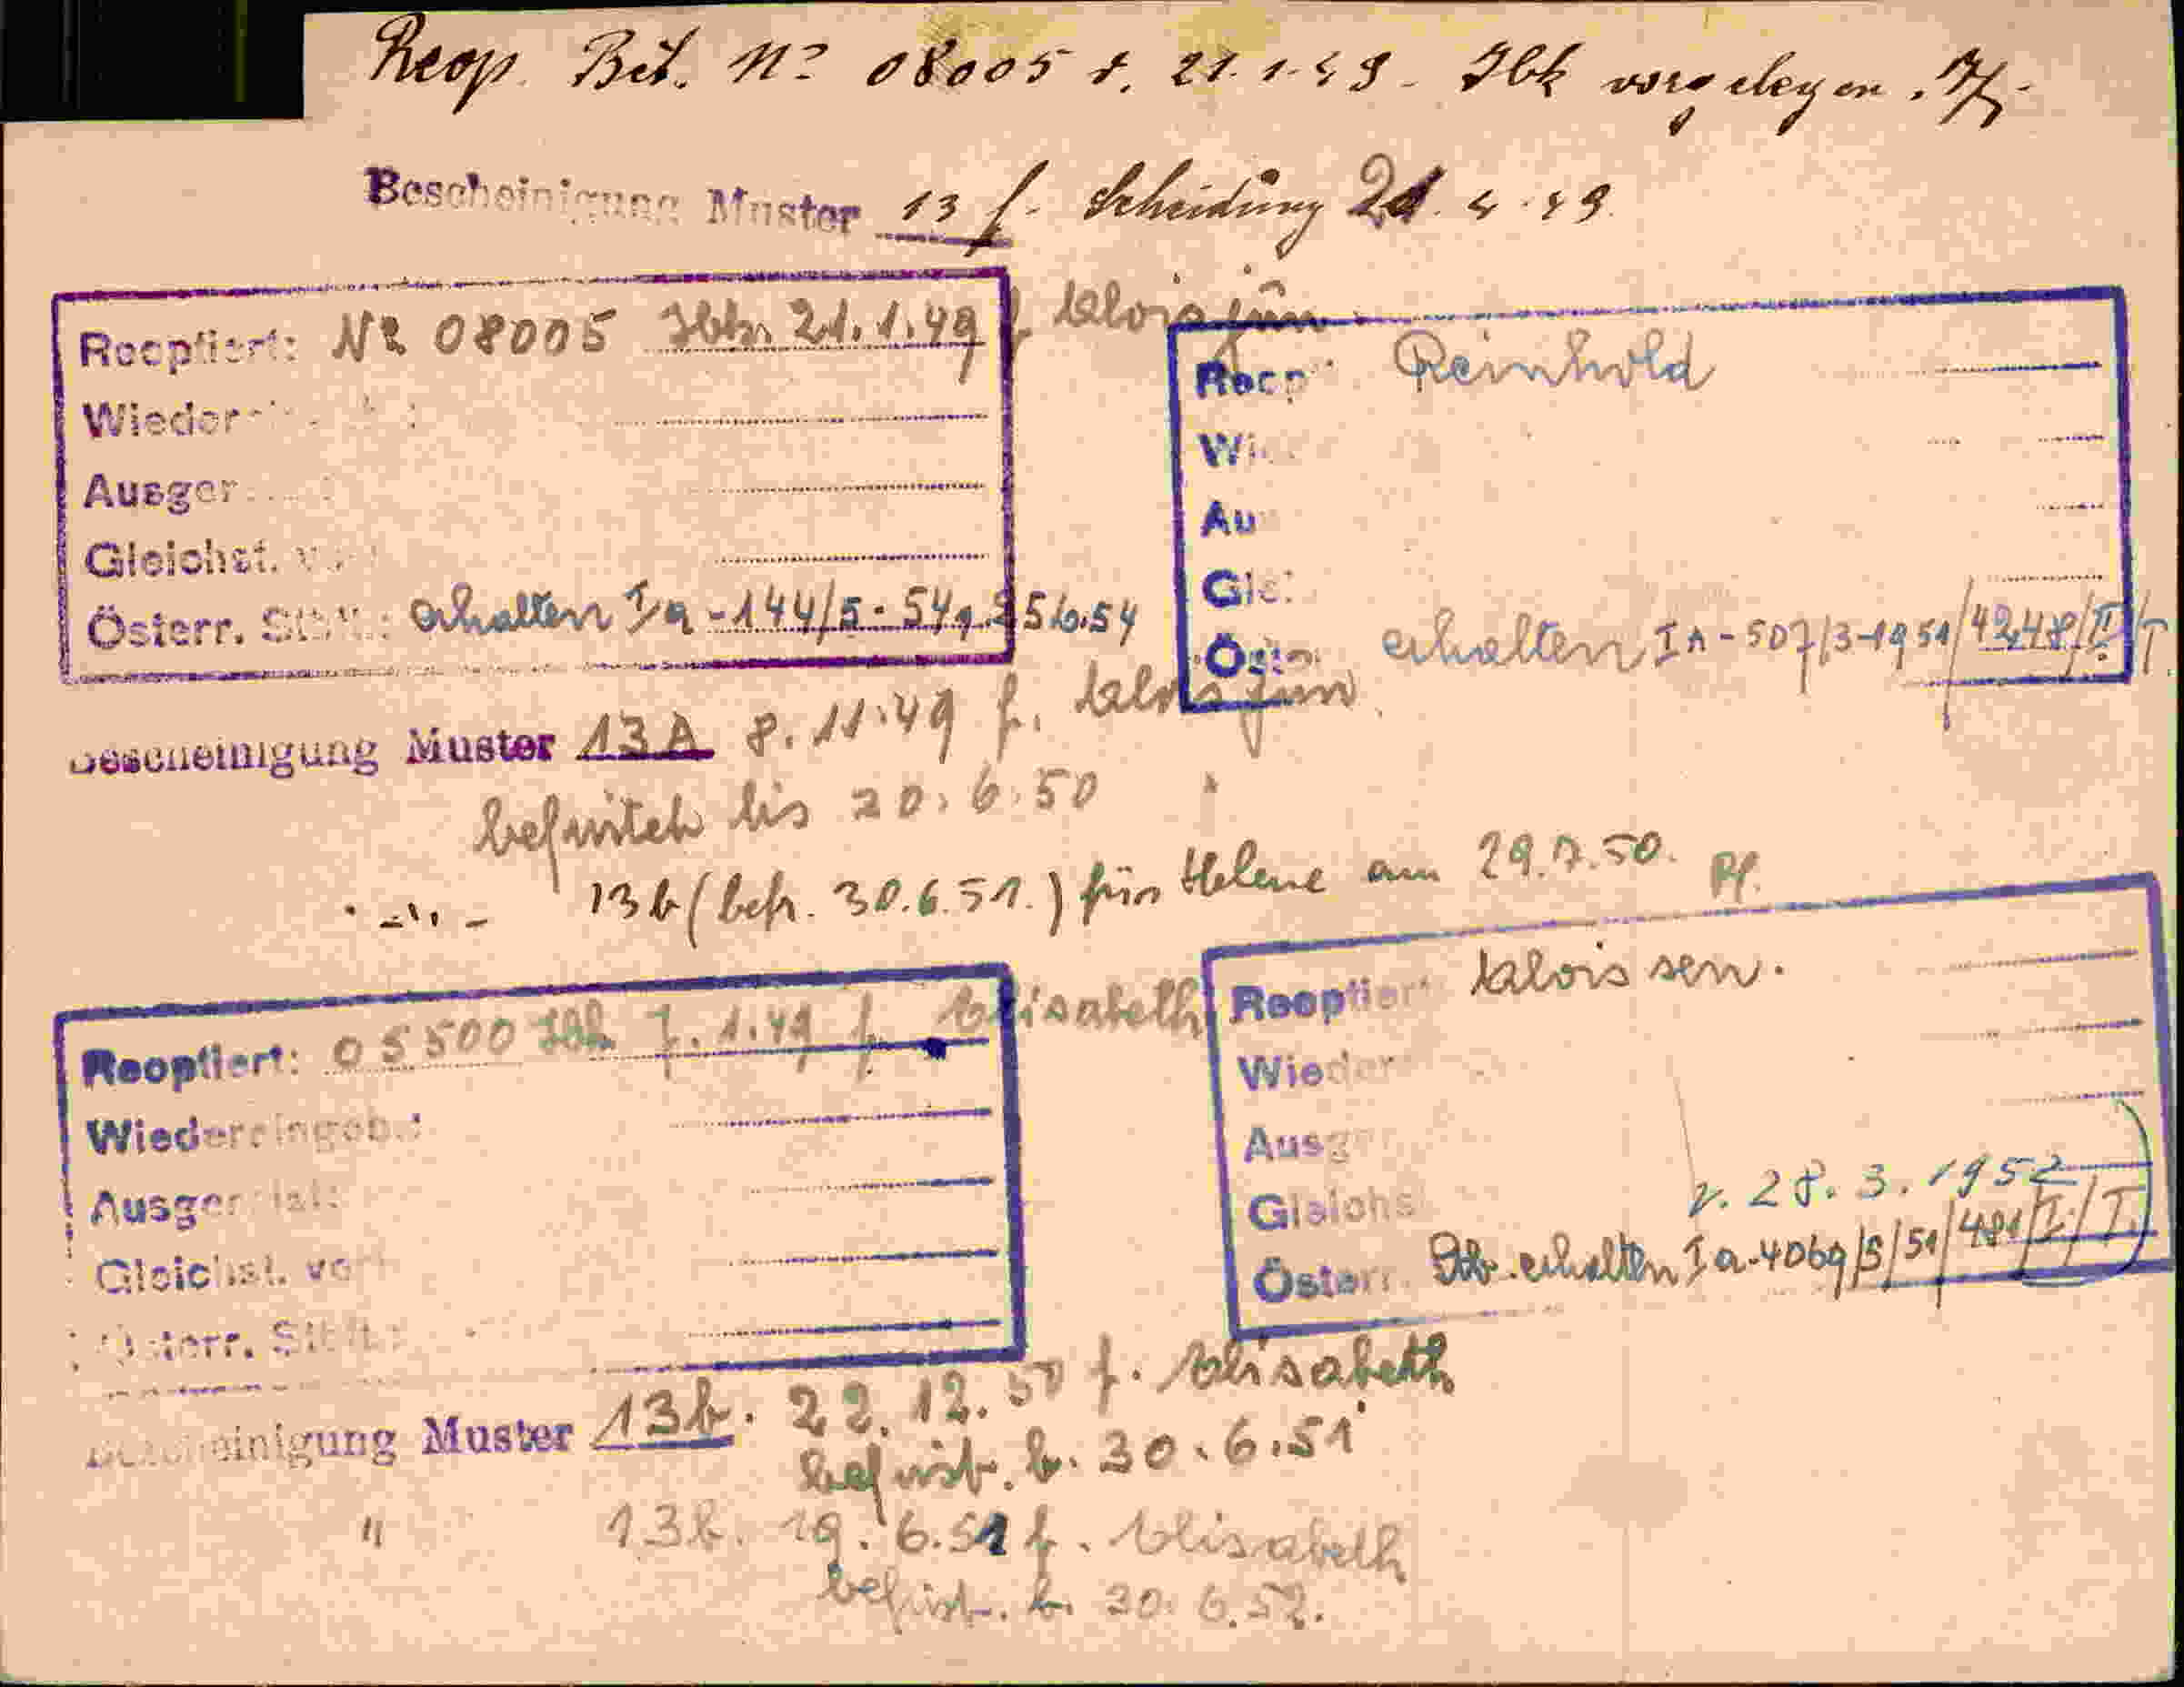 Reop. Bet. No 08005 v. 21.1.49 - Ibk vorgelegen.
Bescheinigung Muster 13 f. Scheidung 21.4.49.
Reoptiert: No 08005 Ibk. 21.1.49 f. Alois jun
Wieder
Ausger
Gleichst. v
Österr. Stb.: erhalten Ia-144/5-54 v. 25.6.54
Reop Reinhold
Wi
Au
Gle
Öst erhalten Ia-507/3-1951/4248/II/T
Bescheinigung Muster 13A 8.11.49 f. Alois jun
befristet bis 20.6.50
- " - 13b (befr. 30.6.51.) für Helene am 29.7.50.
Reoptiert: 05500 Ibk 7.1.49 f. Elisabeth
Wiedereingeb.:
Ausger
Gleichst. vor
Österr. Stb.:
Reoptiert Alois sen.
Wieder
Ausger
Gleichs v. 28.3.1952
Österr. Stb. erhalten Ia-4069/5/51/481/I/I
Bescheinigung Muster 13b. 22.12.50 f. Elisabeth
befrist. b. 30.6.51
" 13b. 19.6.51 f. Elisabeth
befrist. b. 30.6.52.